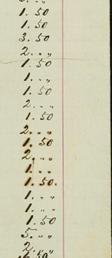 1. 50
1. 50
3. 50
2. „ „
1. 50
1. „ „
1. 50
2. „ „
1. 50
2. „ „
1. 50
2. „ „
1. „ „
1. 50.
1. „ „
1. „ „
1. 50
5. „ „
2. „ „
2. 50